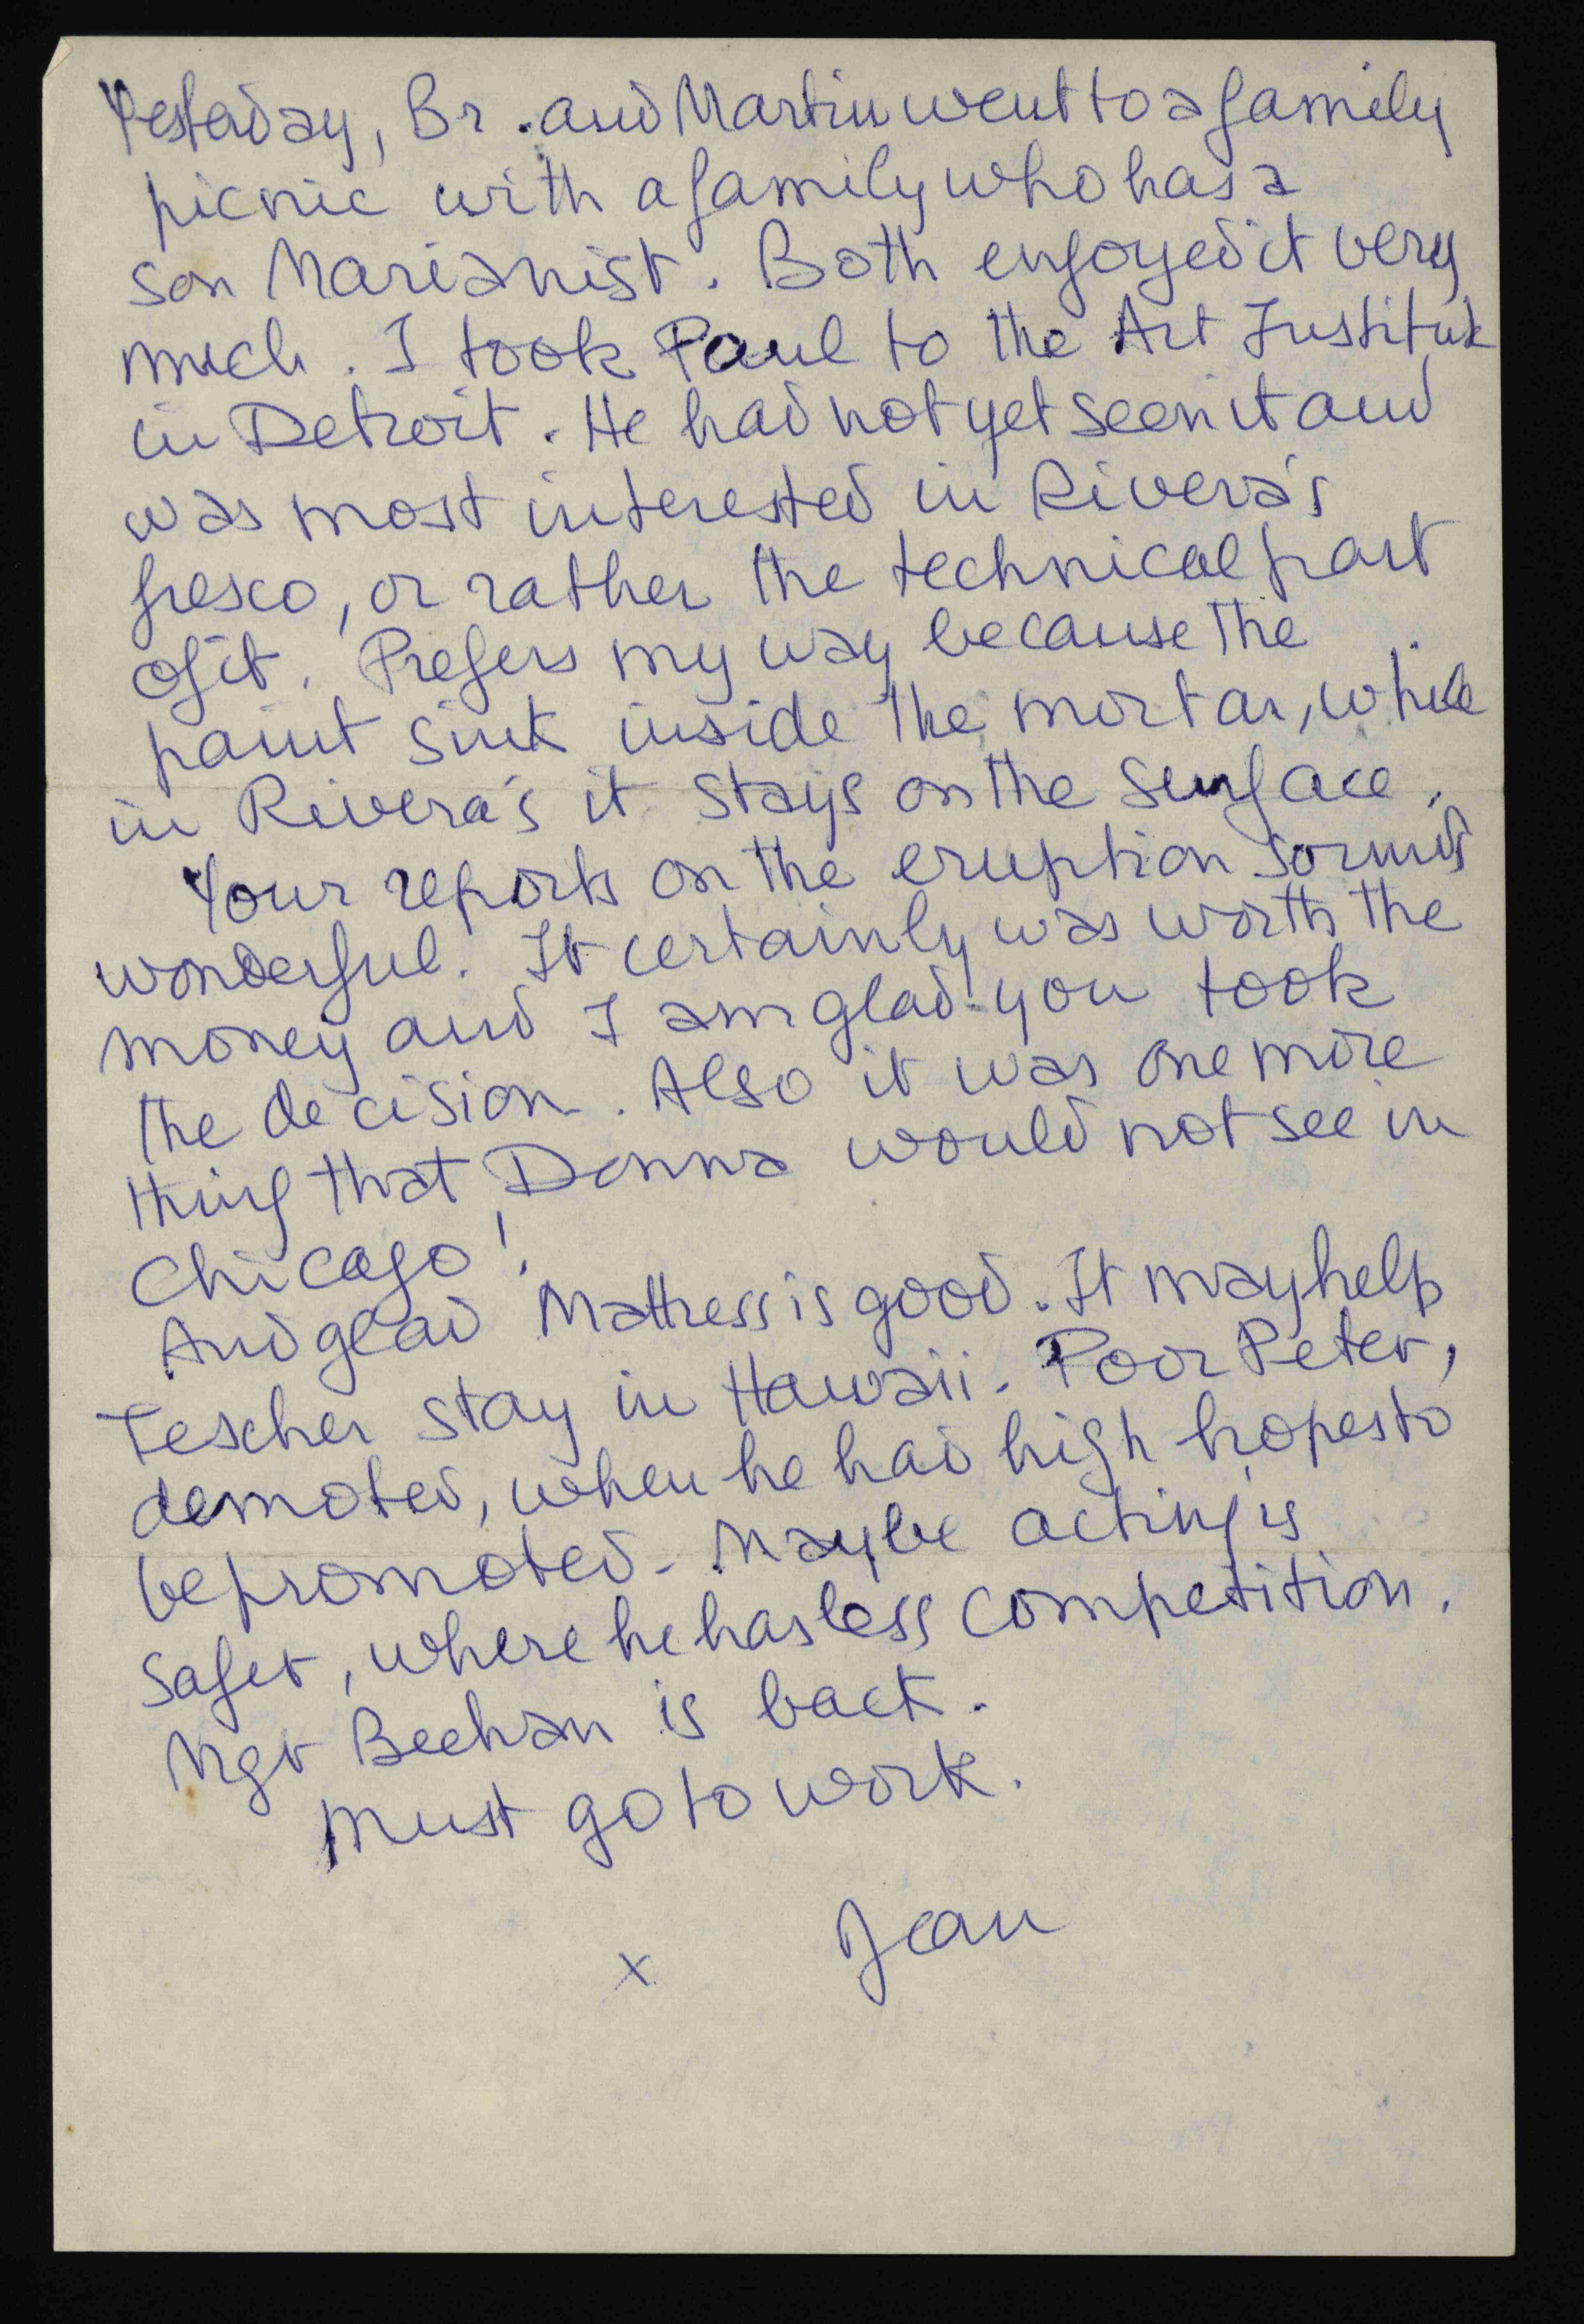 Yesterday, Br. and Martin went to a family
picnic with a family who has a
son Marianist. Both enjoyed it very
much. I took Paul to the Art Institute
in Detroit. He had not yet seen it and
was most interested in Rivera's
fresco, or rather the technical part
of it. Prefers my way because the
paint sink inside the mortar, while
in Rivera's it stays on the surface.
Your reports on the eruption sounds
wonderful. It certainly was worth the
money and I am glad you took
the decision. Also it was one more
thing that Donna would not see in
Chicago!
And glad Mattress is good. It may help
Fescher stay in Hawaii. Poor Peter,
demoted, when he had high hopes to
be promoted. Maybe acting is
safer, where he has less competition.
Mgr Beehan is back.
Must go to work.
x Jean